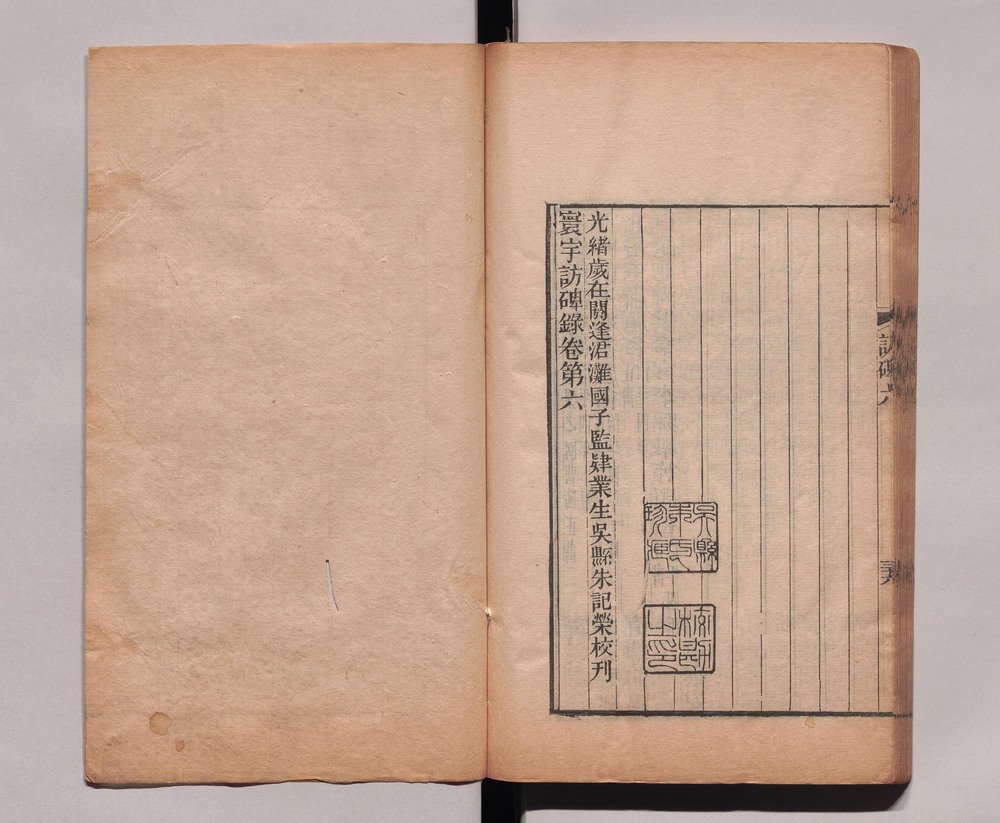 訪碑六
吳縣
朱氏
校勘
之印
光緒歲在閼逢涒灘國子監肄業生吳縣朱記榮校刊
寰宇訪碑錄卷第六